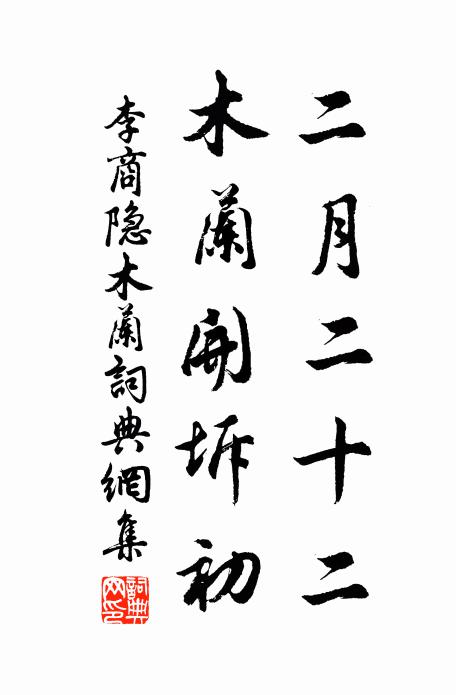 二月二十二
木蘭開坼初
李商隐木蘭詞典網集
詞典
网印